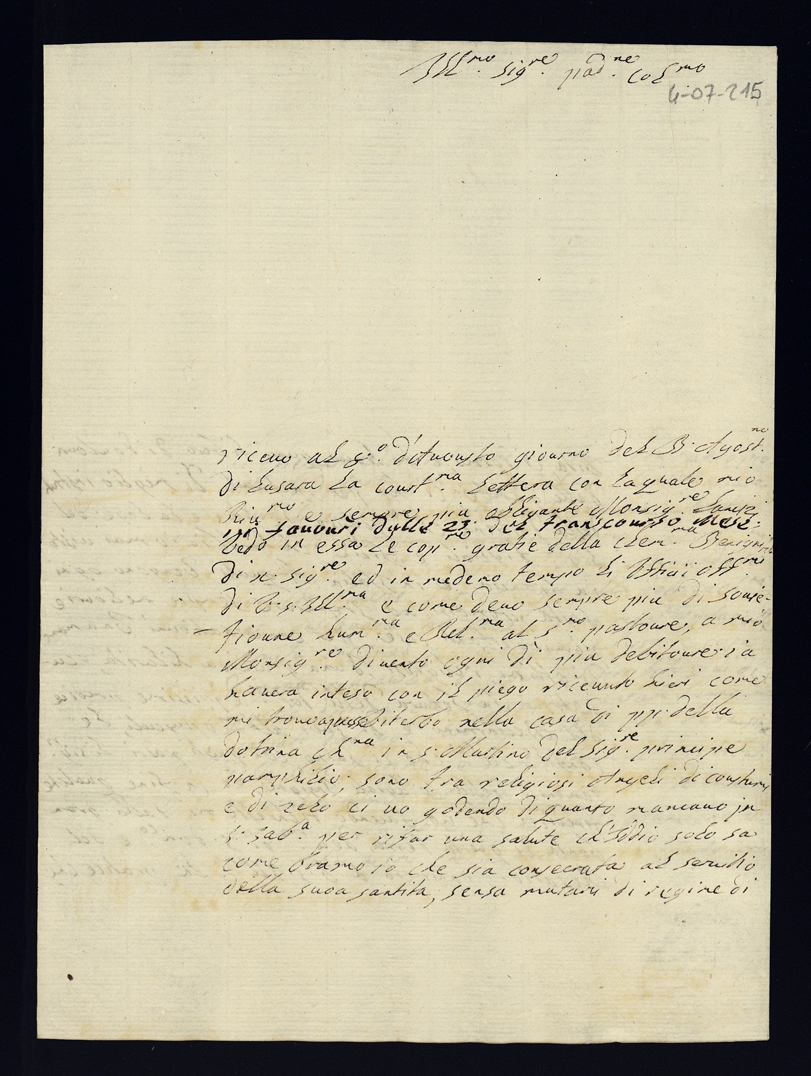 Ill.mo sig.re pad.ne col.mo
4-07-215
riceuo al p.o d'Auousto giourno del B. Agost.no
di Lusara La court.ma Lettera con La quale mio
Riu.mo e sempre piu obligante Monsig.re
in fauouri dylle 23. del transcourso Mese:
Vedo in essa Le copi.re gratie della clem.ma Benignità
di N. sig.re ed in medemo tempo li Officii off.mi
di V.S. Ill.ma e come deuo sempre piu di
tioune hum.ma e Rel.ma al s.mo pastoure, a mio
Monsig.re diuento ogni di piu debitoure: ia
hauera inteso con il piego riceuuto hieri come
mi trouo Viterbo nella casa di pp. della
dotrina Ch.na in s. Martino del sig.re principe
pamphilio; sono tra religiosi Angeli di coustumi
e di zelo ci uo godendo di quanto mancauo in
s. sab.a per rifar una salute ch'Iddio solo sa
come bramo io che sia consecrata al seruitio
della suoa santita, sensa mutarsi di regime di